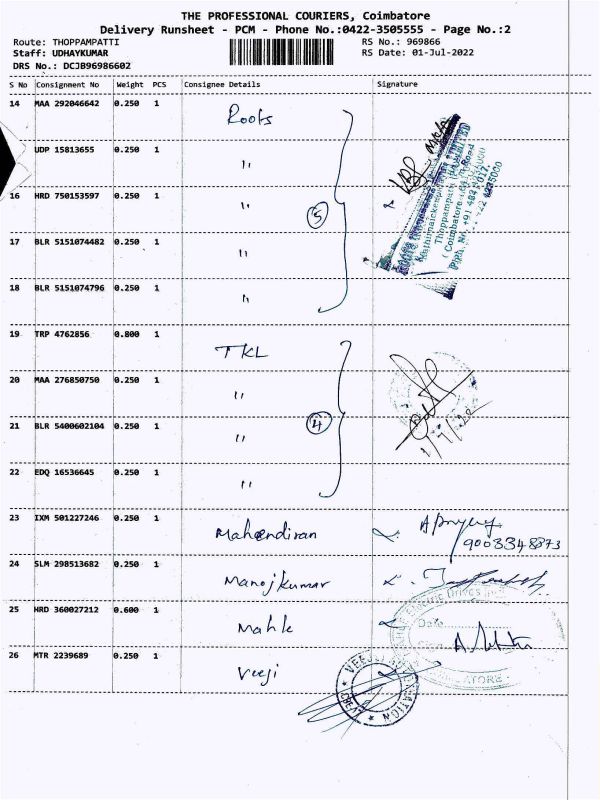 THE PROFESSIONAL COURIERS, Coimbatore
Delivery Runsheet - PCM - Phone No.:0422-3505555 - Page No.:2
Route: THOPPAMPATTI RS No.: 969866
Staff: UDHAYKUMAR RS Date: 01-Jul-2022
DRS No.: DCJB96986602
S No Consignment No Weight PCS Consignee Details Signature
14 MAA 292046642 0.250 1 Roots
UDP 15813655 0.250 1 "
16 HRD 750153597 0.250 1 "
17 BLR 5151074482 0.250 1 "
18 BLR 5151074796 0.250 1 "
5
Thoppampatti
19 TRP 4762856 0.800 1 TKL
20 MAA 276850750 0.250 1 "
21 BLR 5400602104 0.250 1 "
22 EDQ 16536645 0.250 1 "
4
1/7/22
23 IXM 501227246 0.250 1 Mahendiran
9003348873
24 SLM 298513682 0.250 1 Manojkumar
25 HRD 360027212 0.600 1 Mahle
Date
26 MTR 2239689 0.250 1 Veeji